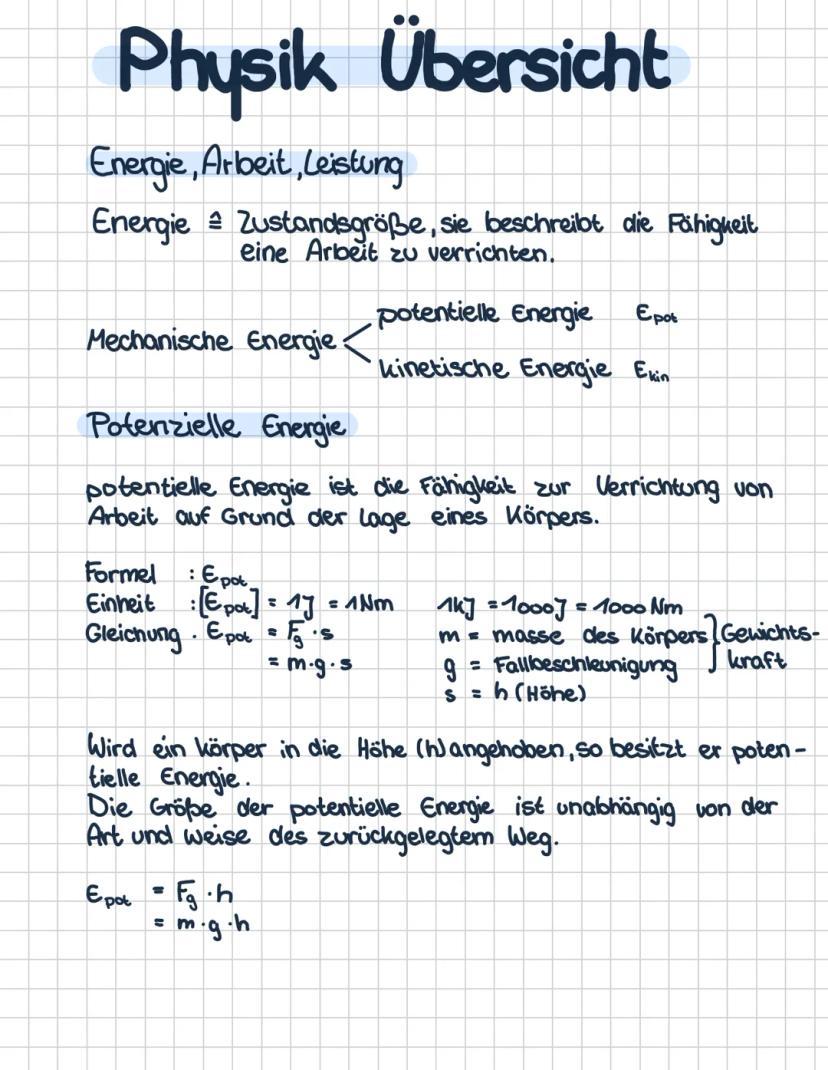 Physik Übersicht
Energie, Arbeit, Leistung
Energie ≙ Zustandsgröße, sie beschreibt die Fähigkeit
eine Arbeit zu verrichten.
potentielle Energie Epot
Mechanische Energie <
kinetische Energie Ekin
Potenzielle Energie
potentielle Energie ist die Fähigkeit zur Verrichtung von
Arbeit auf Grund der Lage eines Körpers.
Formel : Epot
Einheit : [Epot] = 1J = 1Nm 1kJ = 1000J = 1000 Nm
Gleichung . Epot = Fg · s m = masse des Körpers } Gewichts-
= m·g·s g = Fallbeschleunigung kraft
s = h (Höhe)
Wird ein körper in die Höhe (h) angehoben, so besitzt er poten-
tielle Energie.
Die Größe der potentielle Energie ist unabhängig von der
Art und weise des zurückgelegtem Weg.
Epot = Fg · h
= m · g · h